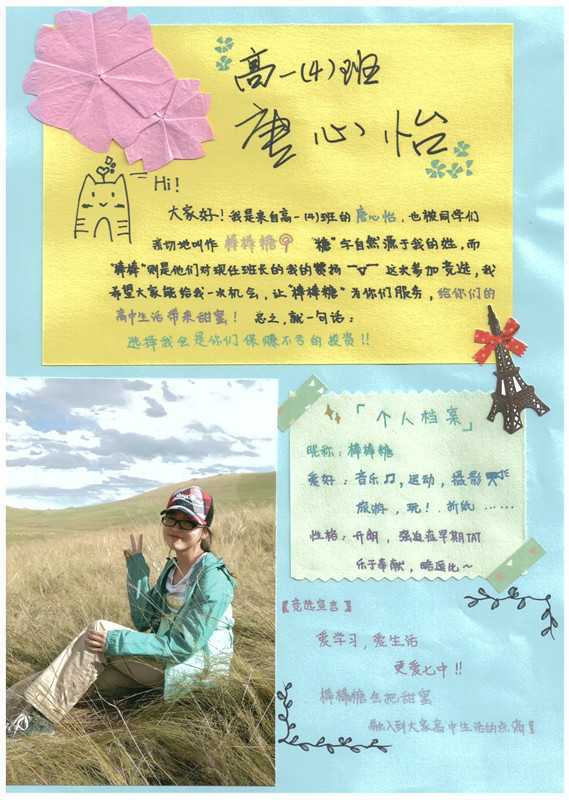 高一(4)班
唐心怡
Hi!
大家好！我是来自高一(4)班的唐心怡，也被同学们
亲切地叫作 棒棒糖 "糖"字自然源于我的姓，而
"棒棒"则是他们对现任班长的我的赞扬 这次参加竞选，我
希望大家能给我一次机会，让"棒棒糖"为你们服务，给你们的
高中生活带来甜蜜！ 总之，就一句话：
选择我会是你们保赚不亏的投资!!
「个人档案」
昵称：棒棒糖
爱好：音乐♫，运动，摄影
旅游，玩！折纸 ……
性格：开朗，强迫症早期TAT
乐于奉献，略逗比~
【竞选宣言】
爱学习，爱生活
更爱七中!!
棒棒糖会把甜蜜
融入到大家高中生活的点滴！